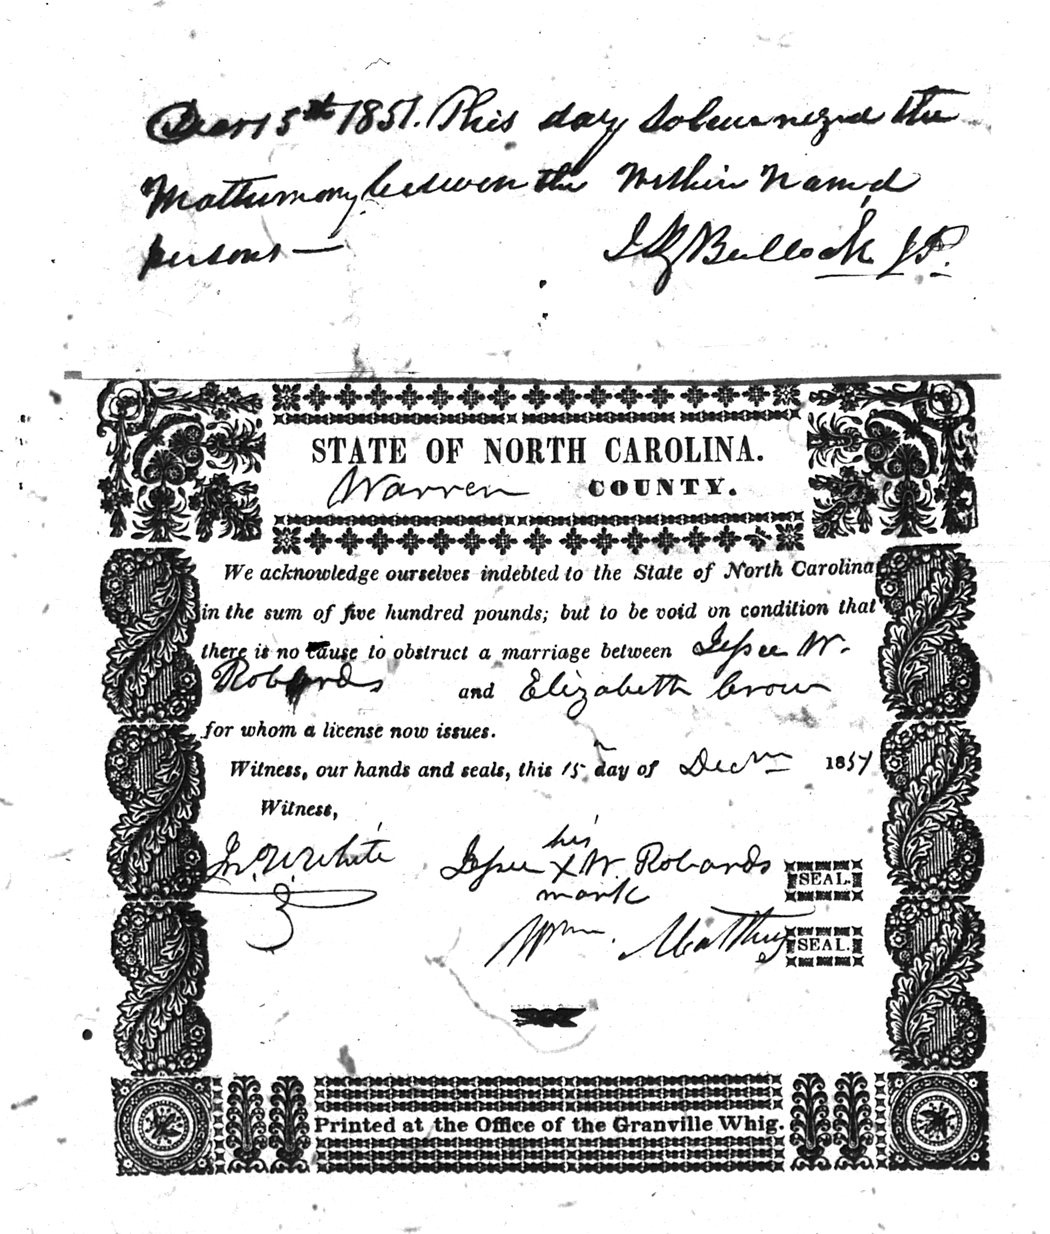 Decr 15th 1857. This day Solemnized the
Matrimony between the Within Nam'd
persons —
Bullock J.P.
STATE OF NORTH CAROLINA.
Warren COUNTY.
We acknowledge ourselves indebted to the State of North Carolina
in the sum of five hundred pounds; but to be void on condition that
there is no cause to obstruct a marriage between Jessee W.
Robards and Elizabeth Crow
for whom a license now issues.
Witness, our hands and seals, this 15 day of Decm 1857
Witness,
his
Jn. W. White Jessee X W. Robards SEAL.
mark
Wm. Matthis SEAL.
Printed at the Office of the Granville Whig.